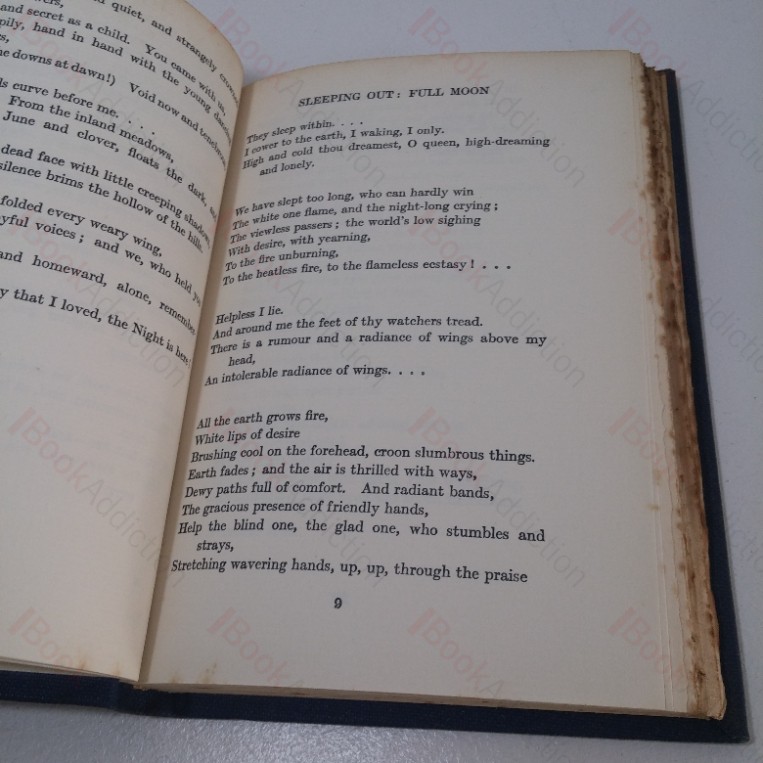 quiet, and strangely crowned
and secret as a child. You came with us,
hand in hand with the young dancing
downs at dawn!) Void now and tenebrous
curve before me. . . .
From the inland meadows,
June and clover, floats the dark, and
dead face with little creeping shadows,
silence brims the hollow of the hills.
folded every weary wing,
voices; and we, who held you
homeward, alone, remember
that I loved, the Night is here!
SLEEPING OUT: FULL MOON
They sleep within. . . .
I cower to the earth, I waking, I only.
High and cold thou dreamest, O queen, high-dreaming
and lonely.
We have slept too long, who can hardly win
The white one flame, and the night-long crying;
The viewless passers; the world's low sighing
With desire, with yearning,
To the fire unburning,
To the heatless fire, to the flameless ecstasy! . . .
Helpless I lie.
And around me the feet of thy watchers tread.
There is a rumour and a radiance of wings above my
head,
An intolerable radiance of wings. . . .
All the earth grows fire,
White lips of desire
Brushing cool on the forehead, croon slumbrous things.
Earth fades; and the air is thrilled with ways,
Dewy paths full of comfort. And radiant bands,
The gracious presence of friendly hands,
Help the blind one, the glad one, who stumbles and
strays,
Stretching wavering hands, up, up, through the praise
9
BookAddiction